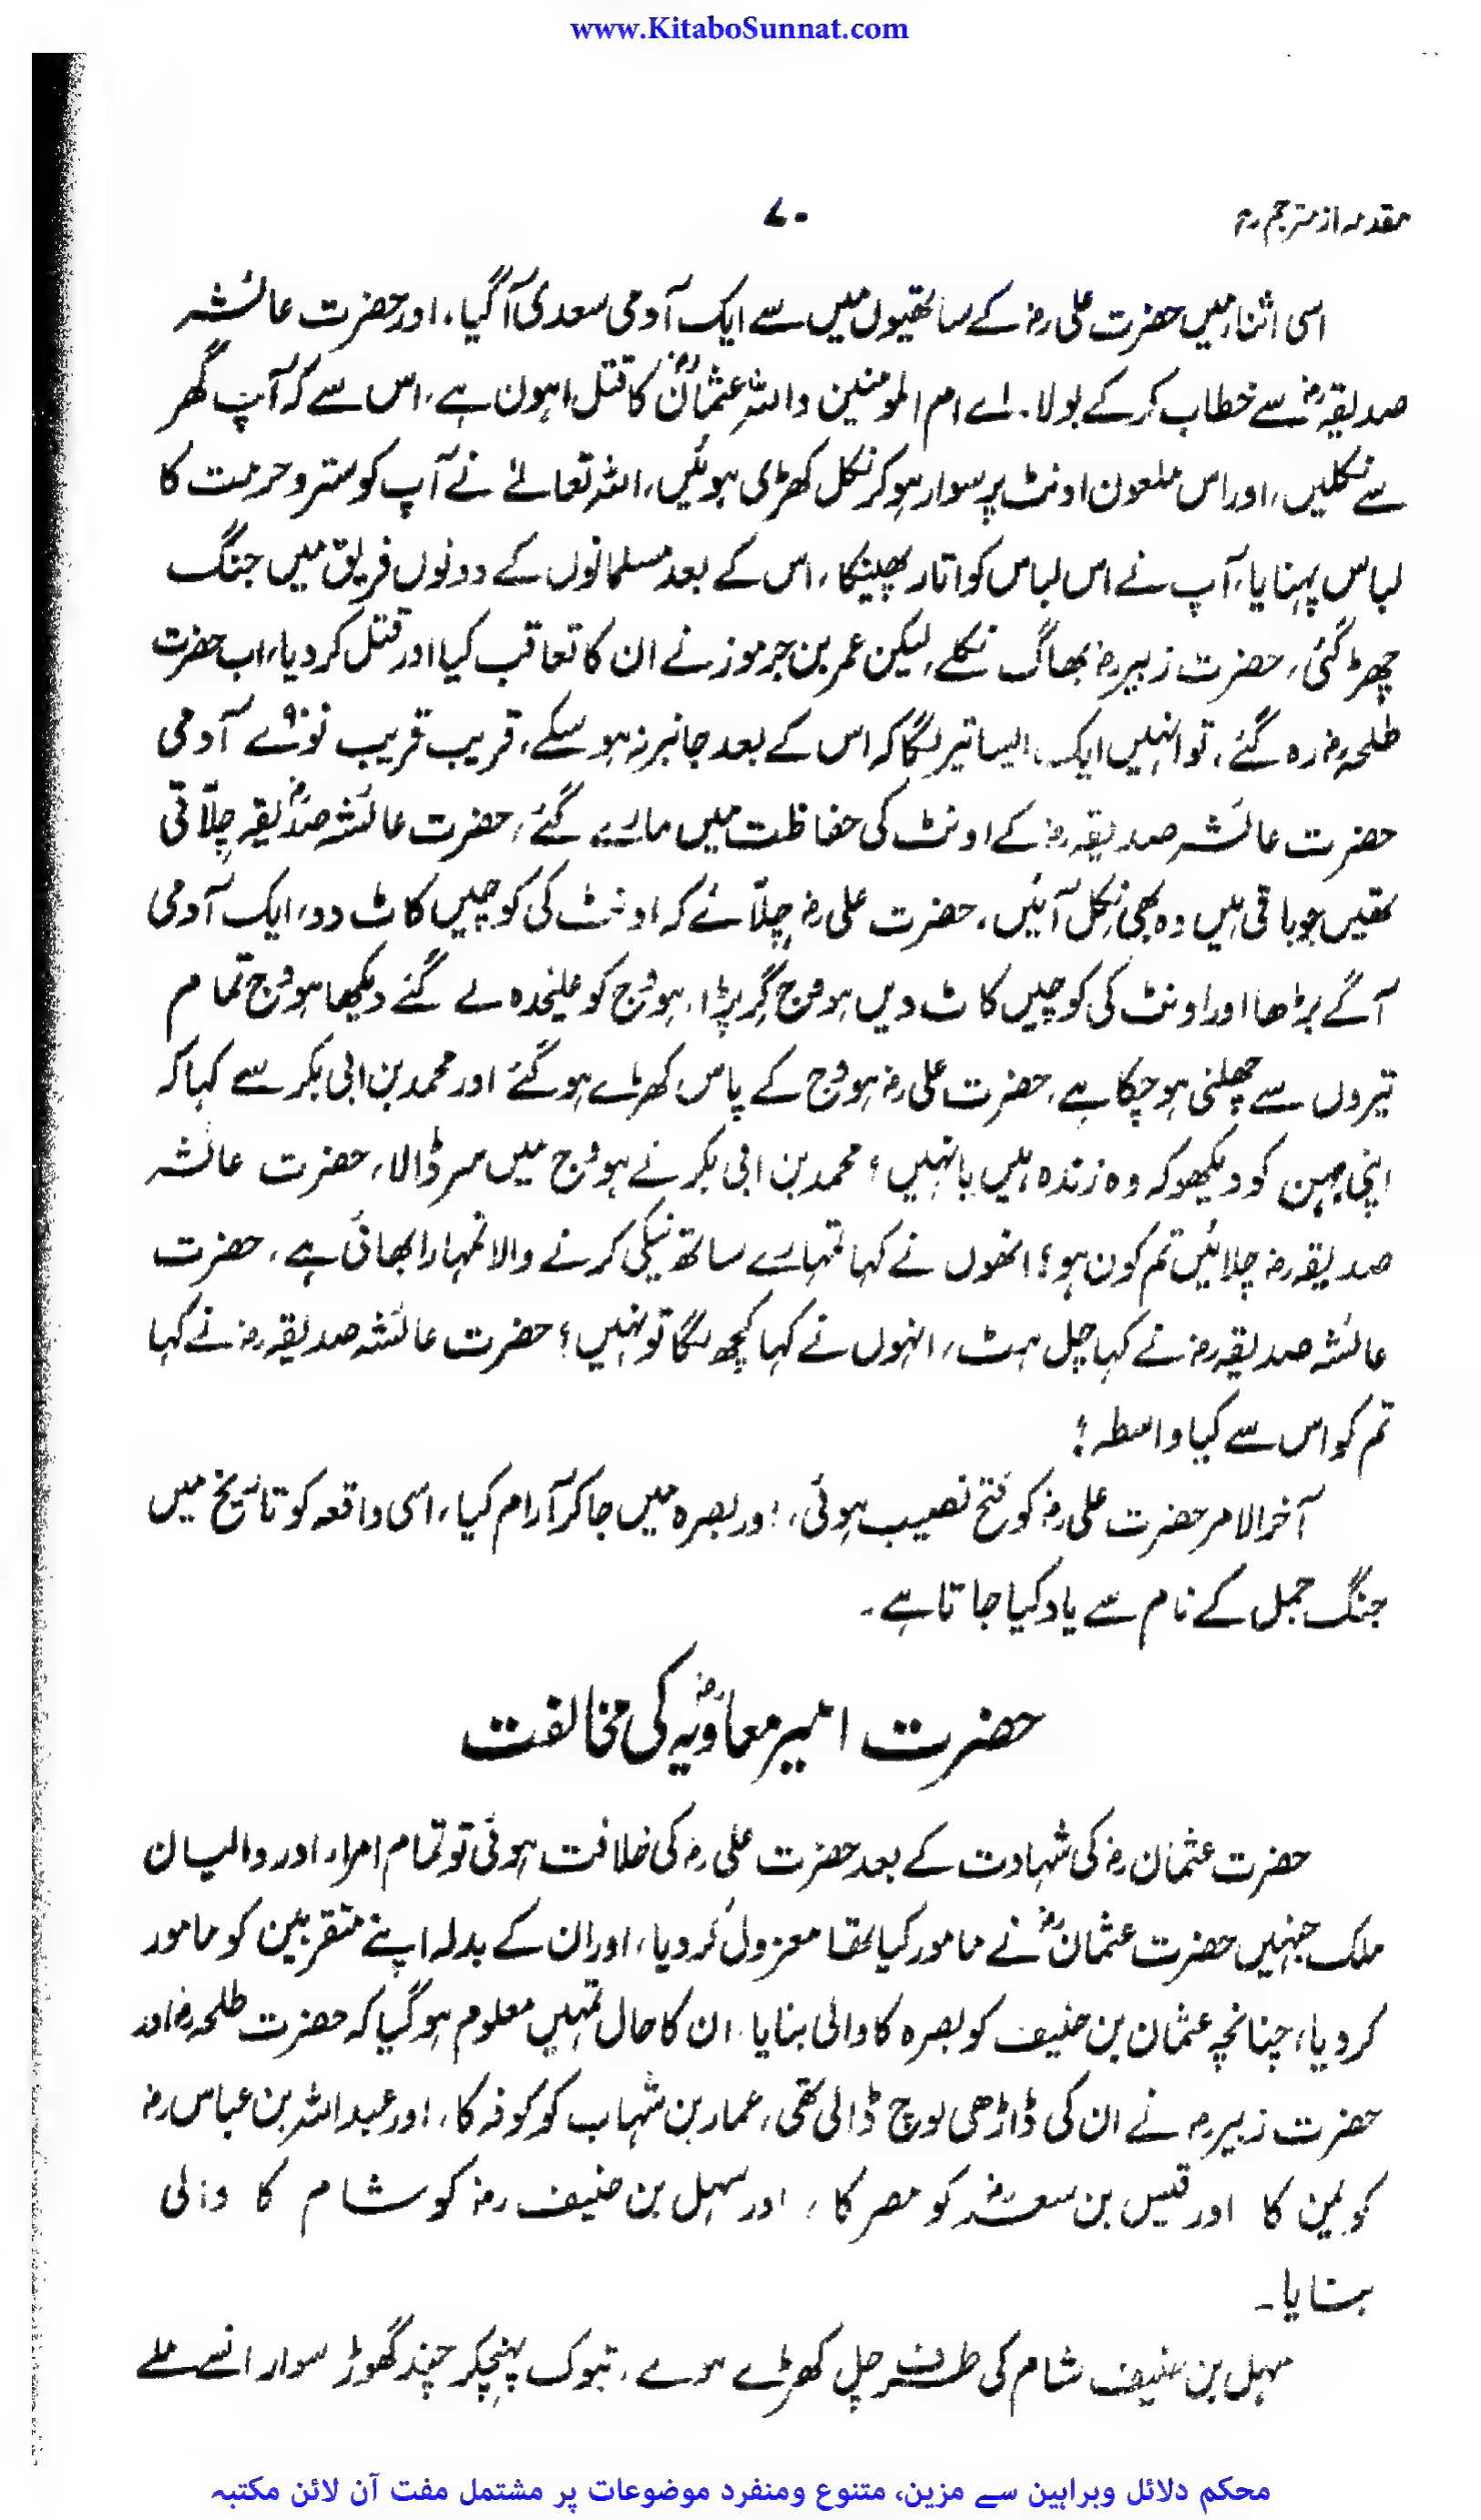 www.KitaboSunnat.com
مقدمہ از مترجم رح
۷۰
اسی اثناء میں حضرت علی رض کے ساتھیوں میں سے ایک آدمی سعدی آ گیا، اور حضرت عائشہ
صدیقہ رض سے خطاب کر کے بولا۔ اے ام المومنین واللہ عثمان رض کا قتل اہون ہے، اس سے کہ آپ گھر
سے نکلیں، اور اس ملعون اونٹ پر سوار ہو کر نکل کھڑی ہوئیں، اللہ تعالےٰ نے آپ کو ستر و حرمت کا
لباس پہنایا، آپ نے اس لباس کو اتار پھینکا، اس کے بعد مسلمانوں کے دونوں فریق میں جنگ
چھڑ گئی، حضرت زبیر رض بھاگ نکلے، لیکن عمر بن جرموز نے ان کا تعاقب کیا اور قتل کر دیا، اب حضرت
طلحہ رض رہ گئے، تو انہیں ایک ایسا تیر لگا کہ اس کے بعد جانبر نہ ہو سکے، قریب قریب نوّے آدمی
حضرت عائشہ صدیقہ رض کے اونٹ کی حفاظت میں مارے گئے، حضرت عائشہ صدیقہ رض چلّاتی
تھیں جو باقی ہیں وہ بھی نکل آئیں، حضرت علی رض چلّائے کہ اونٹ کی کوچیں کاٹ دو، ایک آدمی
آگے بڑھا اور اونٹ کی کوچیں کاٹ دیں ہودج گر پڑا، ہودج کو علیٰحدہ لے گئے دیکھا ہودج تمام
تیروں سے چھلنی ہو چکا ہے، حضرت علی رض ہودج کے پاس کھڑے ہو گئے اور محمد بن ابی بکر سے کہا کہ
اپنی بہن کو دیکھو کہ وہ زندہ ہیں یا نہیں؟ محمد بن ابی بکر نے ہودج میں سر ڈالا، حضرت عائشہ
صدیقہ رض چلائیں تم کون ہو؟ انھوں نے کہا تمہارے ساتھ نیکی کرنے والا تمہارا بھائی ہے، حضرت
عائشہ صدیقہ رض نے کہا چل ہٹ، انہوں نے کہا کچھ لگا تو نہیں؟ حضرت عائشہ صدیقہ رض نے کہا
تم کو اس سے کیا واسطہ؟
آخر الامر حضرت علی رض کو فتح نصیب ہوئی، اور بصرہ میں جا کر آرام کیا، اسی واقعہ کو تاریخ میں
جنگ جمل کے نام سے یاد کیا جاتا ہے۔
حضرت امیر معاویہ رض کی مخالفت
حضرت عثمان رض کی شہادت کے بعد حضرت علی رض کی خلافت ہوئی تو تمام امراء اور والیان
ملک جنہیں حضرت عثمان رض نے مامور کیا تھا معزول کر دیا، اور ان کے بدلہ اپنے مقربین کو مامور
کر دیا، چنانچہ عثمان بن حنیف کو بصرہ کا والی بنایا، ان کا حال تمہیں معلوم ہو گیا کہ حضرت طلحہ رض اور
حضرت زبیر رض نے ان کی ڈاڑھی نوچ ڈالی تھی، عمار بن شہاب کو کوفہ کا، اور عبداللہ بن عباس رض
کو یمن کا اور قیس بن سعد رض کو مصر کا، اور سہل بن حنیف رض کو شام کا والی
بنایا۔
سہل بن حنیف شام کی طرف چل کھڑے ہوے، تبوک پہنچکر چند گھوڑ سوار انسے ملے
محکم دلائل وبراہین سے مزین، متنوع ومنفرد موضوعات پر مشتمل مفت آن لائن مکتبہ